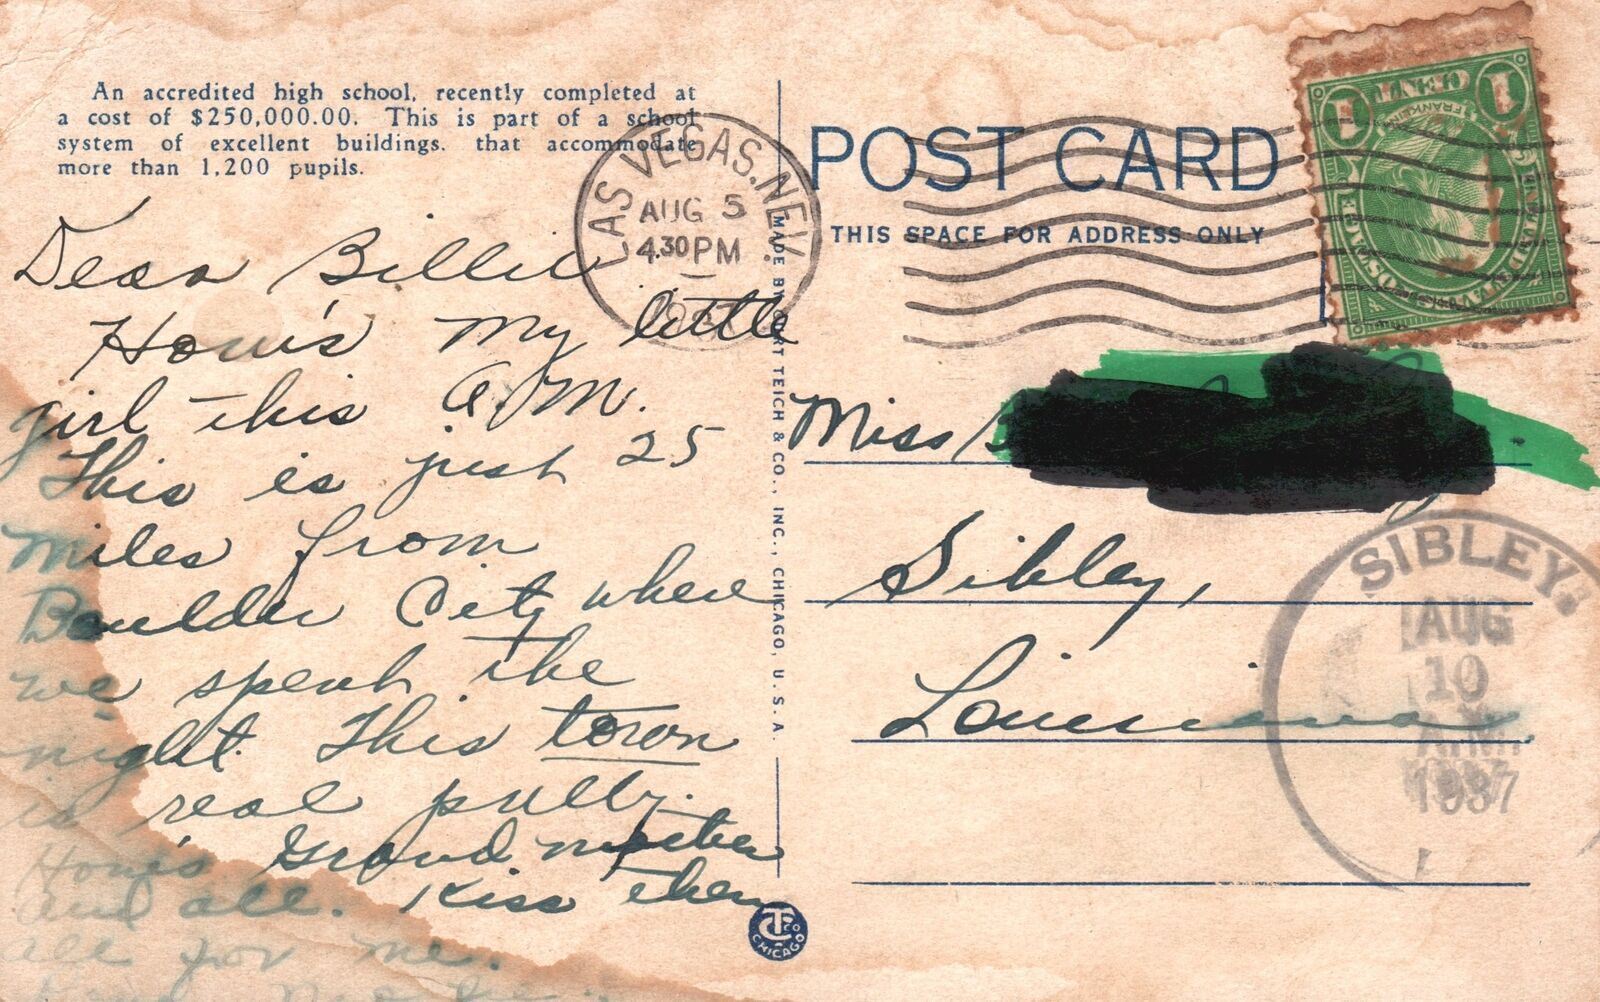 An accredited high school, recently completed at
a cost of $250,000.00. This is part of a school
system of excellent buildings, that accommodate
more than 1,200 pupils.
LAS VEGAS, NEV.
AUG 5
4.30 PM
Dear Billie
How's my little
girl this A.M.
This is just 25
miles from
Boulder City where
we spent the
night. This town
is real pretty.
How's Grand mother
and all. Kiss them
all for me.
MADE BY CURT TEICH & CO., INC., CHICAGO, U.S.A.
CT CO
CHICAGO
POST CARD
THIS SPACE FOR ADDRESS ONLY
1 CENT 1
FRANKLIN
Miss
Sibley,
Louisiana
SIBLEY,
AUG
10
AM
1937